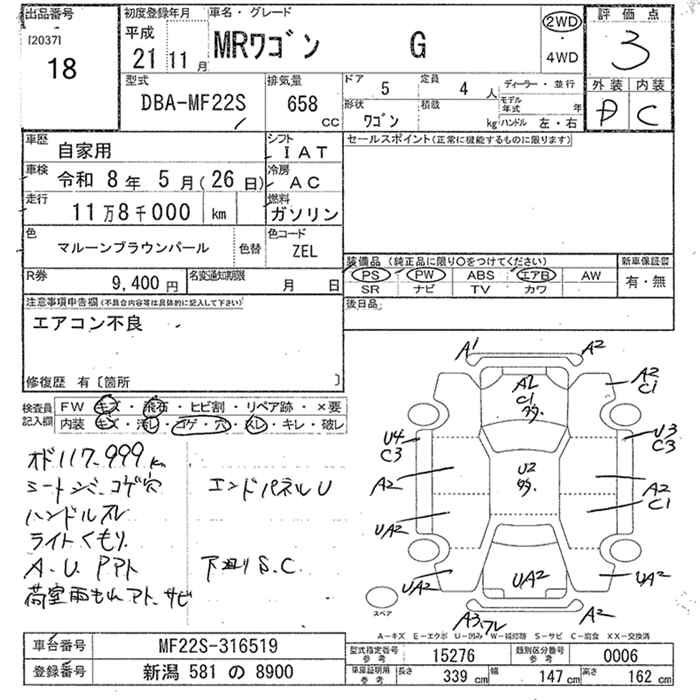 出品番号
[2037]
18
初度登録年月
平成
21 11 月
車名・グレード
MRワゴン G
2WD
4WD
評価点
3
外装 内装
D C
型式
DBA-MF22S
排気量
658 CC
ドア 5
定員 4 人
ディーラー・並行
モデル年式 年
形状 ワゴン
積載 kg
ハンドル 左・右
車歴
自家用
シフト
IAT
車検
令和 8年 5月(26日)
冷房
AC
走行
11万8千000 km
燃料
ガソリン
色
マルーンブラウンパール
色替
色コード
ZEL
R券
9,400 円
名変通知期限
月 日
セールスポイント(正常に機能するものに限ります)
装備品 (純正品に限り〇をつけてください)
新車保証書
PS PW ABS エアB AW
SR ナビ TV カワ
有・無
後日品
注意事項申告欄(不具合内容等は具体的に記入して下さい)
エアコン不良
修復歴 有〔箇所 〕
検査員記入欄
FW キズ・飛石・ヒビ割・リペア跡・×要
内装 キズ・汚レ・コゲ・穴・スレ・キレ・破レ
オド117.999km
シートシミ.コゲ穴
ハンドルスレ
ライトくもり
A.U.Pアト
荷室雨もれアト.サビ
エンドパネルU
下廻りS.C
A1 A2
A2
C1
A2
C1
多.
U4
C3
U3
C3
A2
U2
多.
A2
C1
UA2
UA2
UA2
UA2
A3.ワレ
A2
スペア
A-キズ E-エクボ U-凹み W-補修跡 S-サビ C-腐食 XX-交換済
車台番号
MF22S-316519
登録番号
新潟 581 の 8900
型式指定番号 参考
15276
類別区分番号 参考
0006
車庫証明用 参考
長さ 339 cm
幅 147 cm
高さ 162 cm